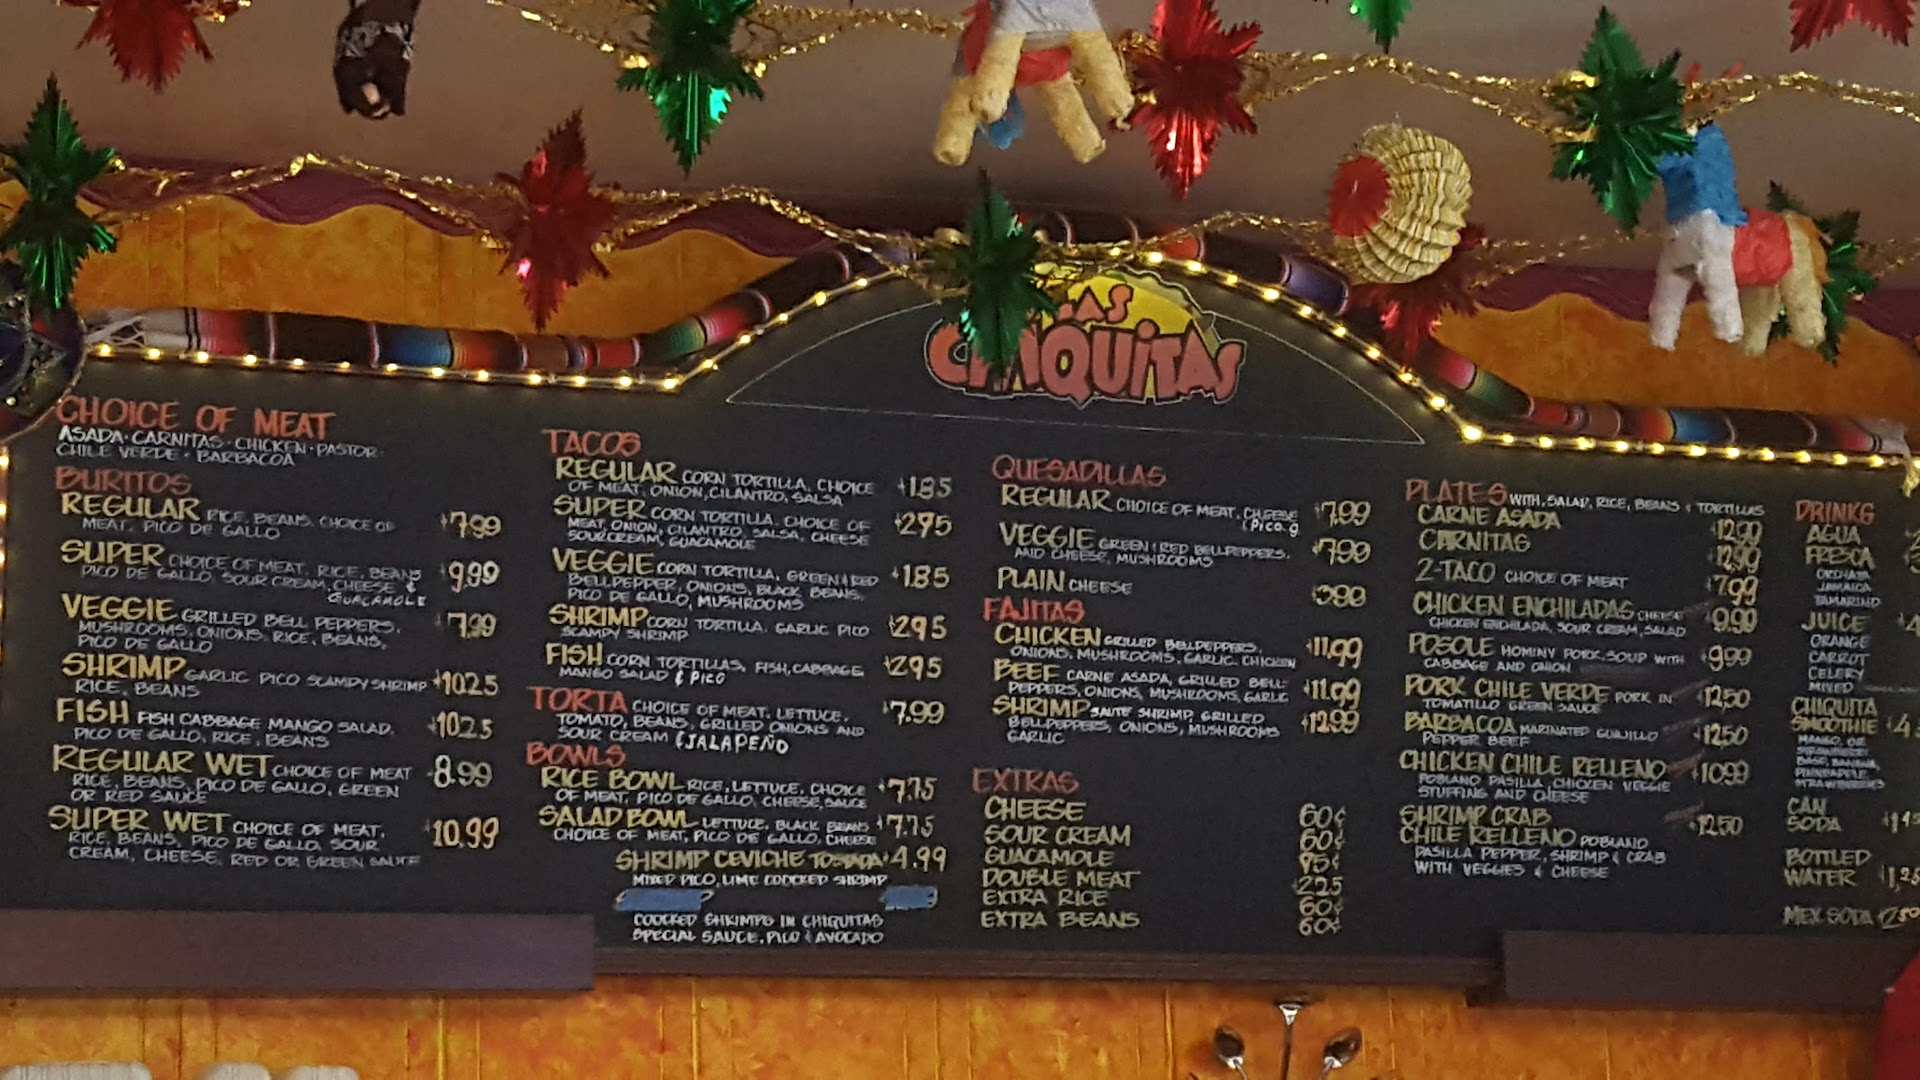 LAS
CHIQUITAS
CHOICE OF MEAT
ASADA · CARNITAS · CHICKEN · PASTOR
CHILE VERDE · BARBACOA
BURITOS
REGULAR RICE, BEANS, CHOICE OF $7.99
MEAT, PICO DE GALLO
SUPER CHOICE OF MEAT, RICE, BEANS $9.99
PICO DE GALLO, SOUR CREAM, CHEESE &
GUACAMOLE
VEGGIE GRILLED BELL PEPPERS, $7.99
MUSHROOMS, ONIONS, RICE, BEANS,
PICO DE GALLO
SHRIMP GARLIC PICO SCAMPY SHRIMP $10.25
RICE, BEANS
FISH FISH CABBAGE MANGO SALAD, $10.25
PICO DE GALLO, RICE, BEANS
REGULAR WET CHOICE OF MEAT 8.99
RICE, BEANS, PICO DE GALLO, GREEN
OR RED SAUCE
SUPER WET CHOICE OF MEAT, 10.99
RICE, BEANS, PICO DE GALLO, SOUR
CREAM, CHEESE, RED OR GREEN SAUCE
TACOS
REGULAR CORN TORTILLA, CHOICE $1.85
OF MEAT, ONION, CILANTRO, SALSA
SUPER CORN TORTILLA, CHOICE OF $2.95
MEAT, ONION, CILANTRO, SALSA, CHEESE
SOUR CREAM, GUACAMOLE
VEGGIE CORN TORTILLA, GREEN & RED $1.85
BELLPEPPER, ONIONS, BLACK BEANS,
PICO DE GALLO, MUSHROOMS
SHRIMP CORN TORTILLA, GARLIC PICO $2.95
SCAMPY SHRIMP
FISH CORN TORTILLAS, FISH, CABBAGE $2.95
MANGO SALAD & PICO
TORTA CHOICE OF MEAT, LETTUCE, $7.99
TOMATO, BEANS, GRILLED ONIONS AND
SOUR CREAM & JALAPEÑO
BOWLS
RICE BOWL RICE, LETTUCE, CHOICE $7.75
OF MEAT, PICO DE GALLO, CHEESE, SAUCE
SALAD BOWL LETTUCE, BLACK BEANS $7.75
CHOICE OF MEAT, PICO DE GALLO, CHEESE
SHRIMP CEVICHE TOSTADA $4.99
MIXED PICO, LIME COOCKED SHRIMP
COOCKED SHRIMPS IN CHIQUITAS
SPECIAL SAUCE, PICO & AVOCADO
QUESADILLAS
REGULAR CHOICE OF MEAT, CHEESE $7.99
& PICO. g
VEGGIE GREEN & RED BELLPEPPERS, $7.90
AND CHEESE, MUSHROOMS
PLAIN CHEESE
FAJITAS
CHICKEN GRILLED BELLPEPPERS, $11.99
ONIONS, MUSHROOMS, GARLIC, CHICKEN
BEEF CARNE ASADA, GRILLED BELL $11.99
PEPPERS, ONIONS, MUSHROOMS, GARLIC
SHRIMP SAUTE SHRIMP, GRILLED $12.99
BELLPEPPERS, ONIONS, MUSHROOMS
GARLIC
EXTRAS
CHEESE 60¢
SOUR CREAM 60¢
GUACAMOLE 95¢
DOUBLE MEAT 2.25
EXTRA RICE 60¢
EXTRA BEANS 60¢
PLATES WITH, SALAD, RICE, BEANS & TORTILLAS
CARNE ASADA $12.99
CARNITAS $12.99
2-TACO CHOICE OF MEAT $7.99
CHICKEN ENCHILADAS CHEESE $9.99
CHICKEN ENCHILADA, SOUR CREAM, SALAD
POSOLE HOMINY PORK, SOUP WITH $9.99
CABBAGE AND ONION
PORK CHILE VERDE PORK IN $12.50
TOMATILLO GREEN SAUCE
BARBACOA MARINATED GUAJILLO $12.50
PEPPER BEEF
CHICKEN CHILE RELLENO $10.99
POBLANO PASILLA, CHICKEN VEGGIE
STUFFING AND CHEESE
SHRIMP CRAB $12.50
CHILE RELLENO POBLANO
PASILLA PEPPER, SHRIMP & CRAB
WITH VEGGIES & CHEESE
DRINKS
AGUA
FRESCA
ORCHATA
JAMAICA
TAMARIND
JUICE $4
ORANGE
CARROT
CELERY
MIXED
CHIQUITA
SMOOTHIE $4
MANGO, OR
STRAWBERRY
BASE, BANANA,
PINNEAPPLE,
STRAWBERRIES
CAN
SODA
BOTTLED
WATER $1.25
MEX SODA $2.50